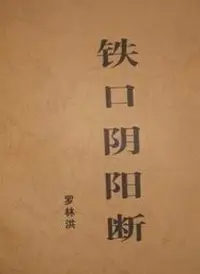 铁口阴阳断
罗林洪